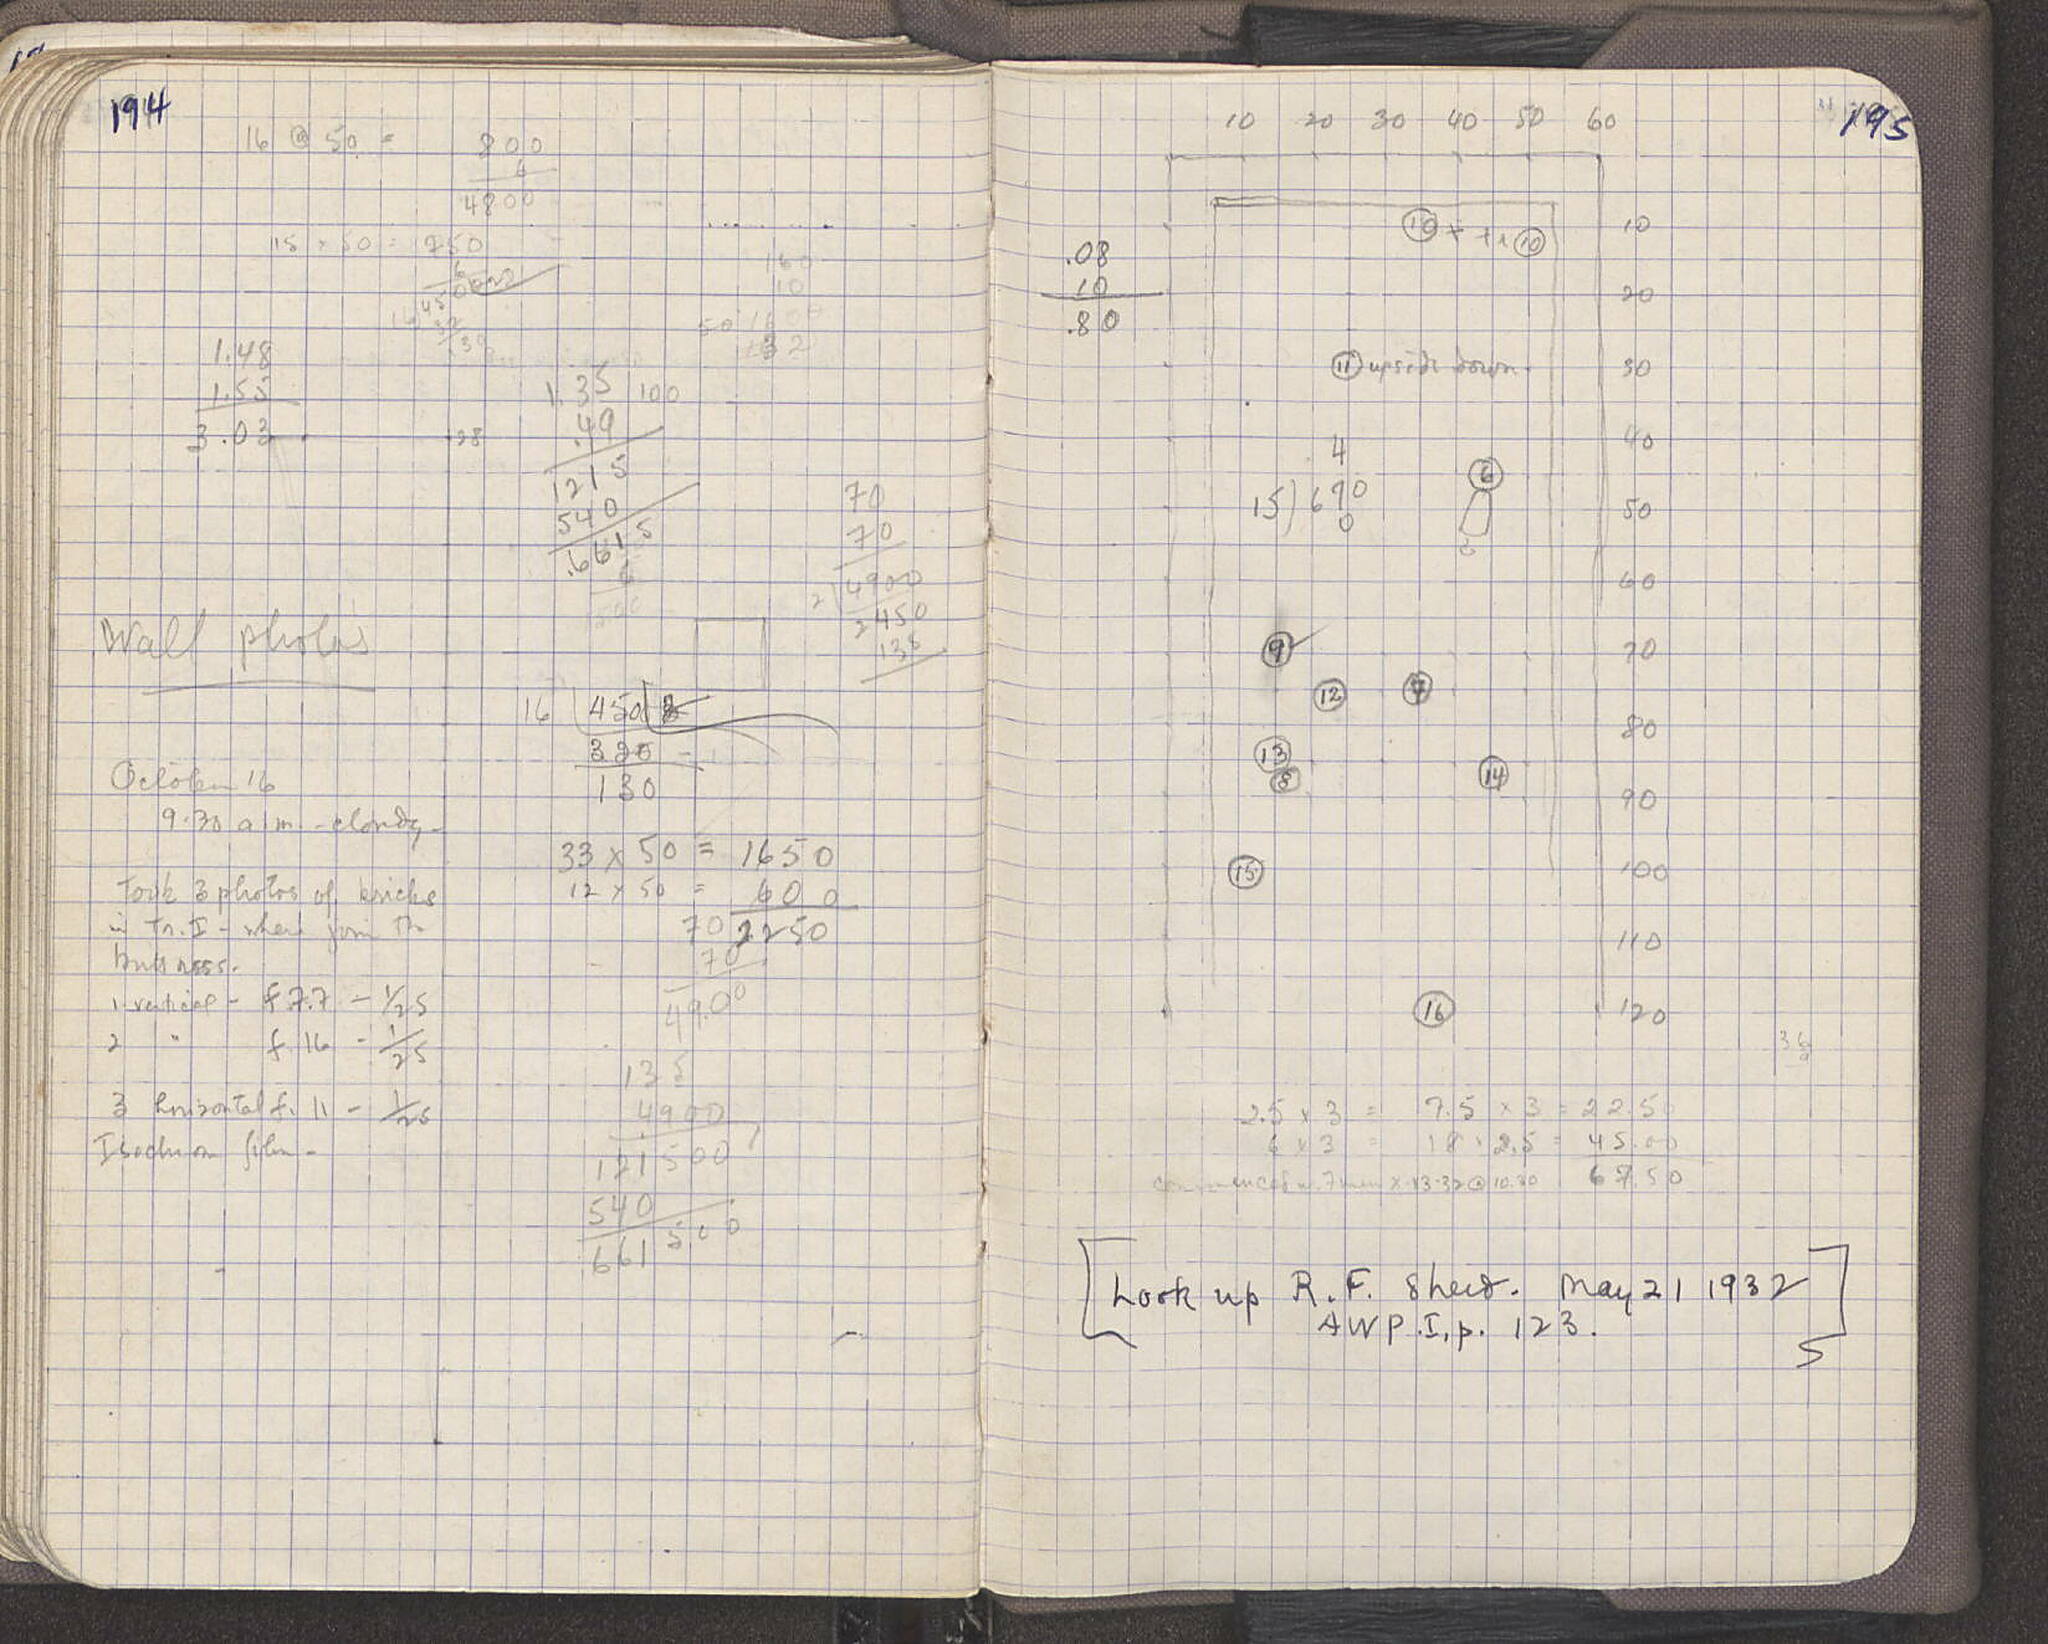 194
16 @ 50 = 800
6
4800
15 x 50 = 750
6
4500
160
10
50 1600
32
1.48
1.55
3.03
28
1.35 100
.49
1215
540
.6615
6
70
70
2 4900
2450
135
Wall photos
16 450
320
130
October 16
9.30 a.m. - cloudy -
33 x 50 = 1650
12 x 50 = 600
2250
70
70
4900
Took 3 photos of bricks
in Tr. I - where join the
buttress.
1 vertical - f 7.7 - 1/25
2 " f. 16 - 1/25
3 horizontal f. 11 - 1/25
Isochrom film -
135
4900
121500
540
661500
195
10 20 30 40 50 60
10
20
30
40
50
60
70
80
90
100
110
120
.08
10
.80
10 + + 10
11 upside down.
4
15) 690
0
6
9
12
7
13
8
14
15
16
36
2.5 x 3 = 7.5 x 3 = 22.50
6 x 3 = 18 x 2.5 = 45.00
67.50
commenced 7 men x @ 10.30
[Look up R.F. Sherd. May 21 1932
AWP.I, p. 123.]
S